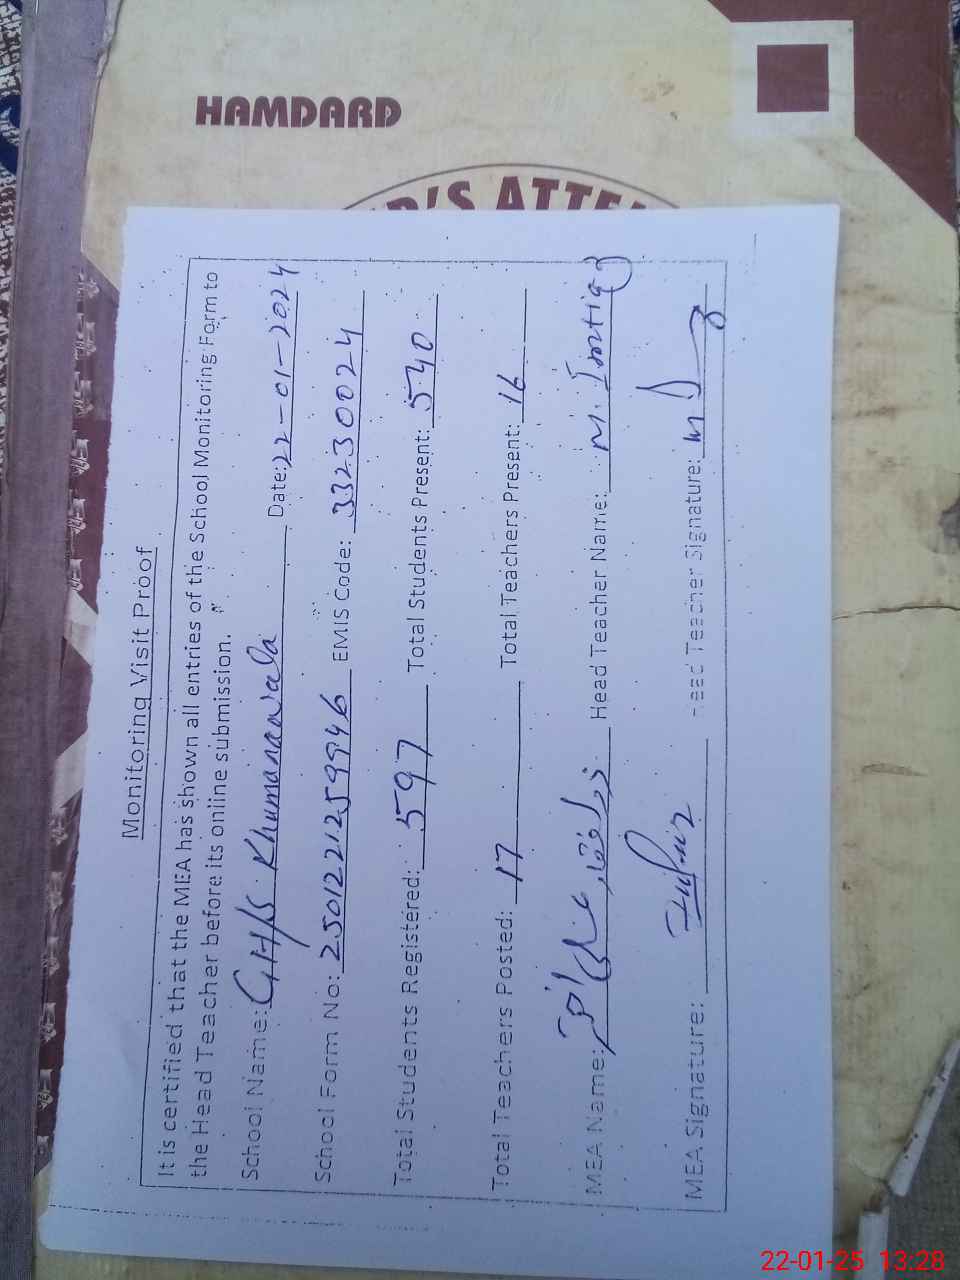 HAMDARD
Monitoring Visit Proof
It is certified that the MEA has shown all entries of the School Monitoring Form to
the Head Teacher before its online submission.
School Name: GH/S Khumanawala Date: 22-01-2024
School Form No: 2501221259946 EMIS Code: 33230024
Total Students Registered: 597 Total Students Present: 540
Total Teachers Posted: 17 Total Teachers Present: 16
MEA Name: Head Teacher Name: M. Imtiaz
MEA Signature: Head Teacher Signature:
22-01-25 13:28